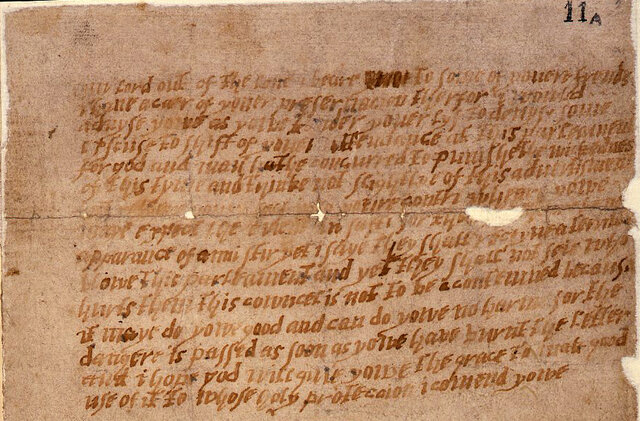 11A
my lord out of the love i beare to some of youere frends
i have a caer of youer preservacion therfor i would
advyse yowe as yowe tender youer lyf to devyse some
excuse to shift of youer attendance at this parleament
for god and man hathe concurred to punishe the wickednes
of this tyme and thinke not slightlye of this advertisment
youre contri wheare yowe
maye expect the event in safti for
apparance of anni stir yet i saye they shall receyve a terrible
blowe this parleament and yet they shall not seie who
hurts them this cowncel is not to be contemned because
it maye do yowe good and can do yowe no harme for the
dangere is passed as soon as yowe have burnt the letter
and i hope god will give yowe the grace to mak good
use of it to whose holy proteccion i comend yowe